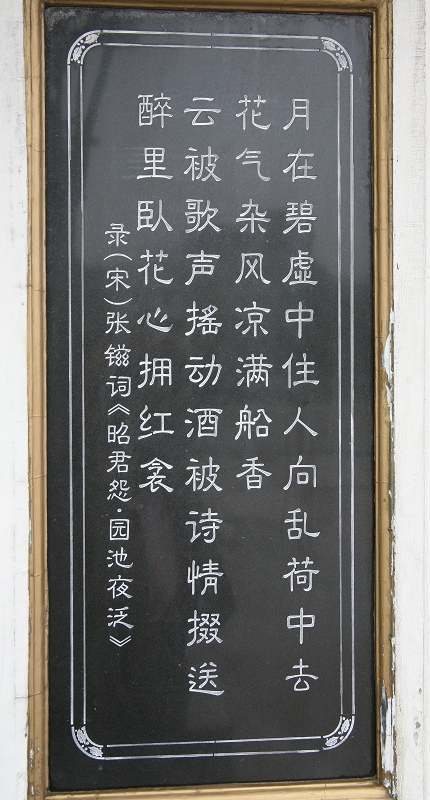 月在碧虚中住人向乱荷中去
花气杂风凉满船香
云被歌声摇动酒被诗情掇送
醉里卧花心拥红衾
录(宋)张镃词《昭君怨·园池夜泛》